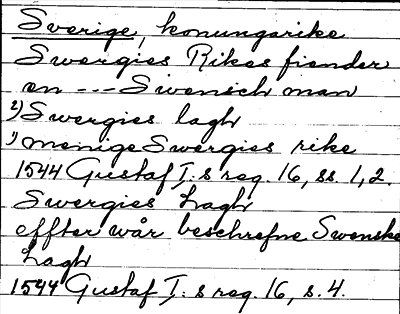 Sverige, konungarike
Swergies Rikes fiender
en --- Swensch man
2) Swergies lagh
1) menige Swergies rike
1544 Gustaf I:s reg. 16, ss. 1, 2.
Swergies Lagh
effter wår beschrefne Swenske
Lagh
1544 Gustaf I:s reg. 16, s. 4.